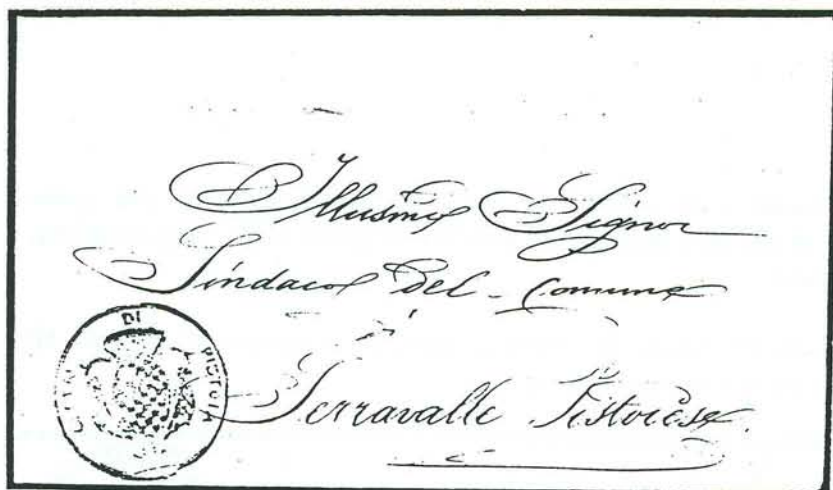 Illusmo Signor
Sindaco del Comune
Serravalle Pistoiese
CITTÀ DI PISTOIA